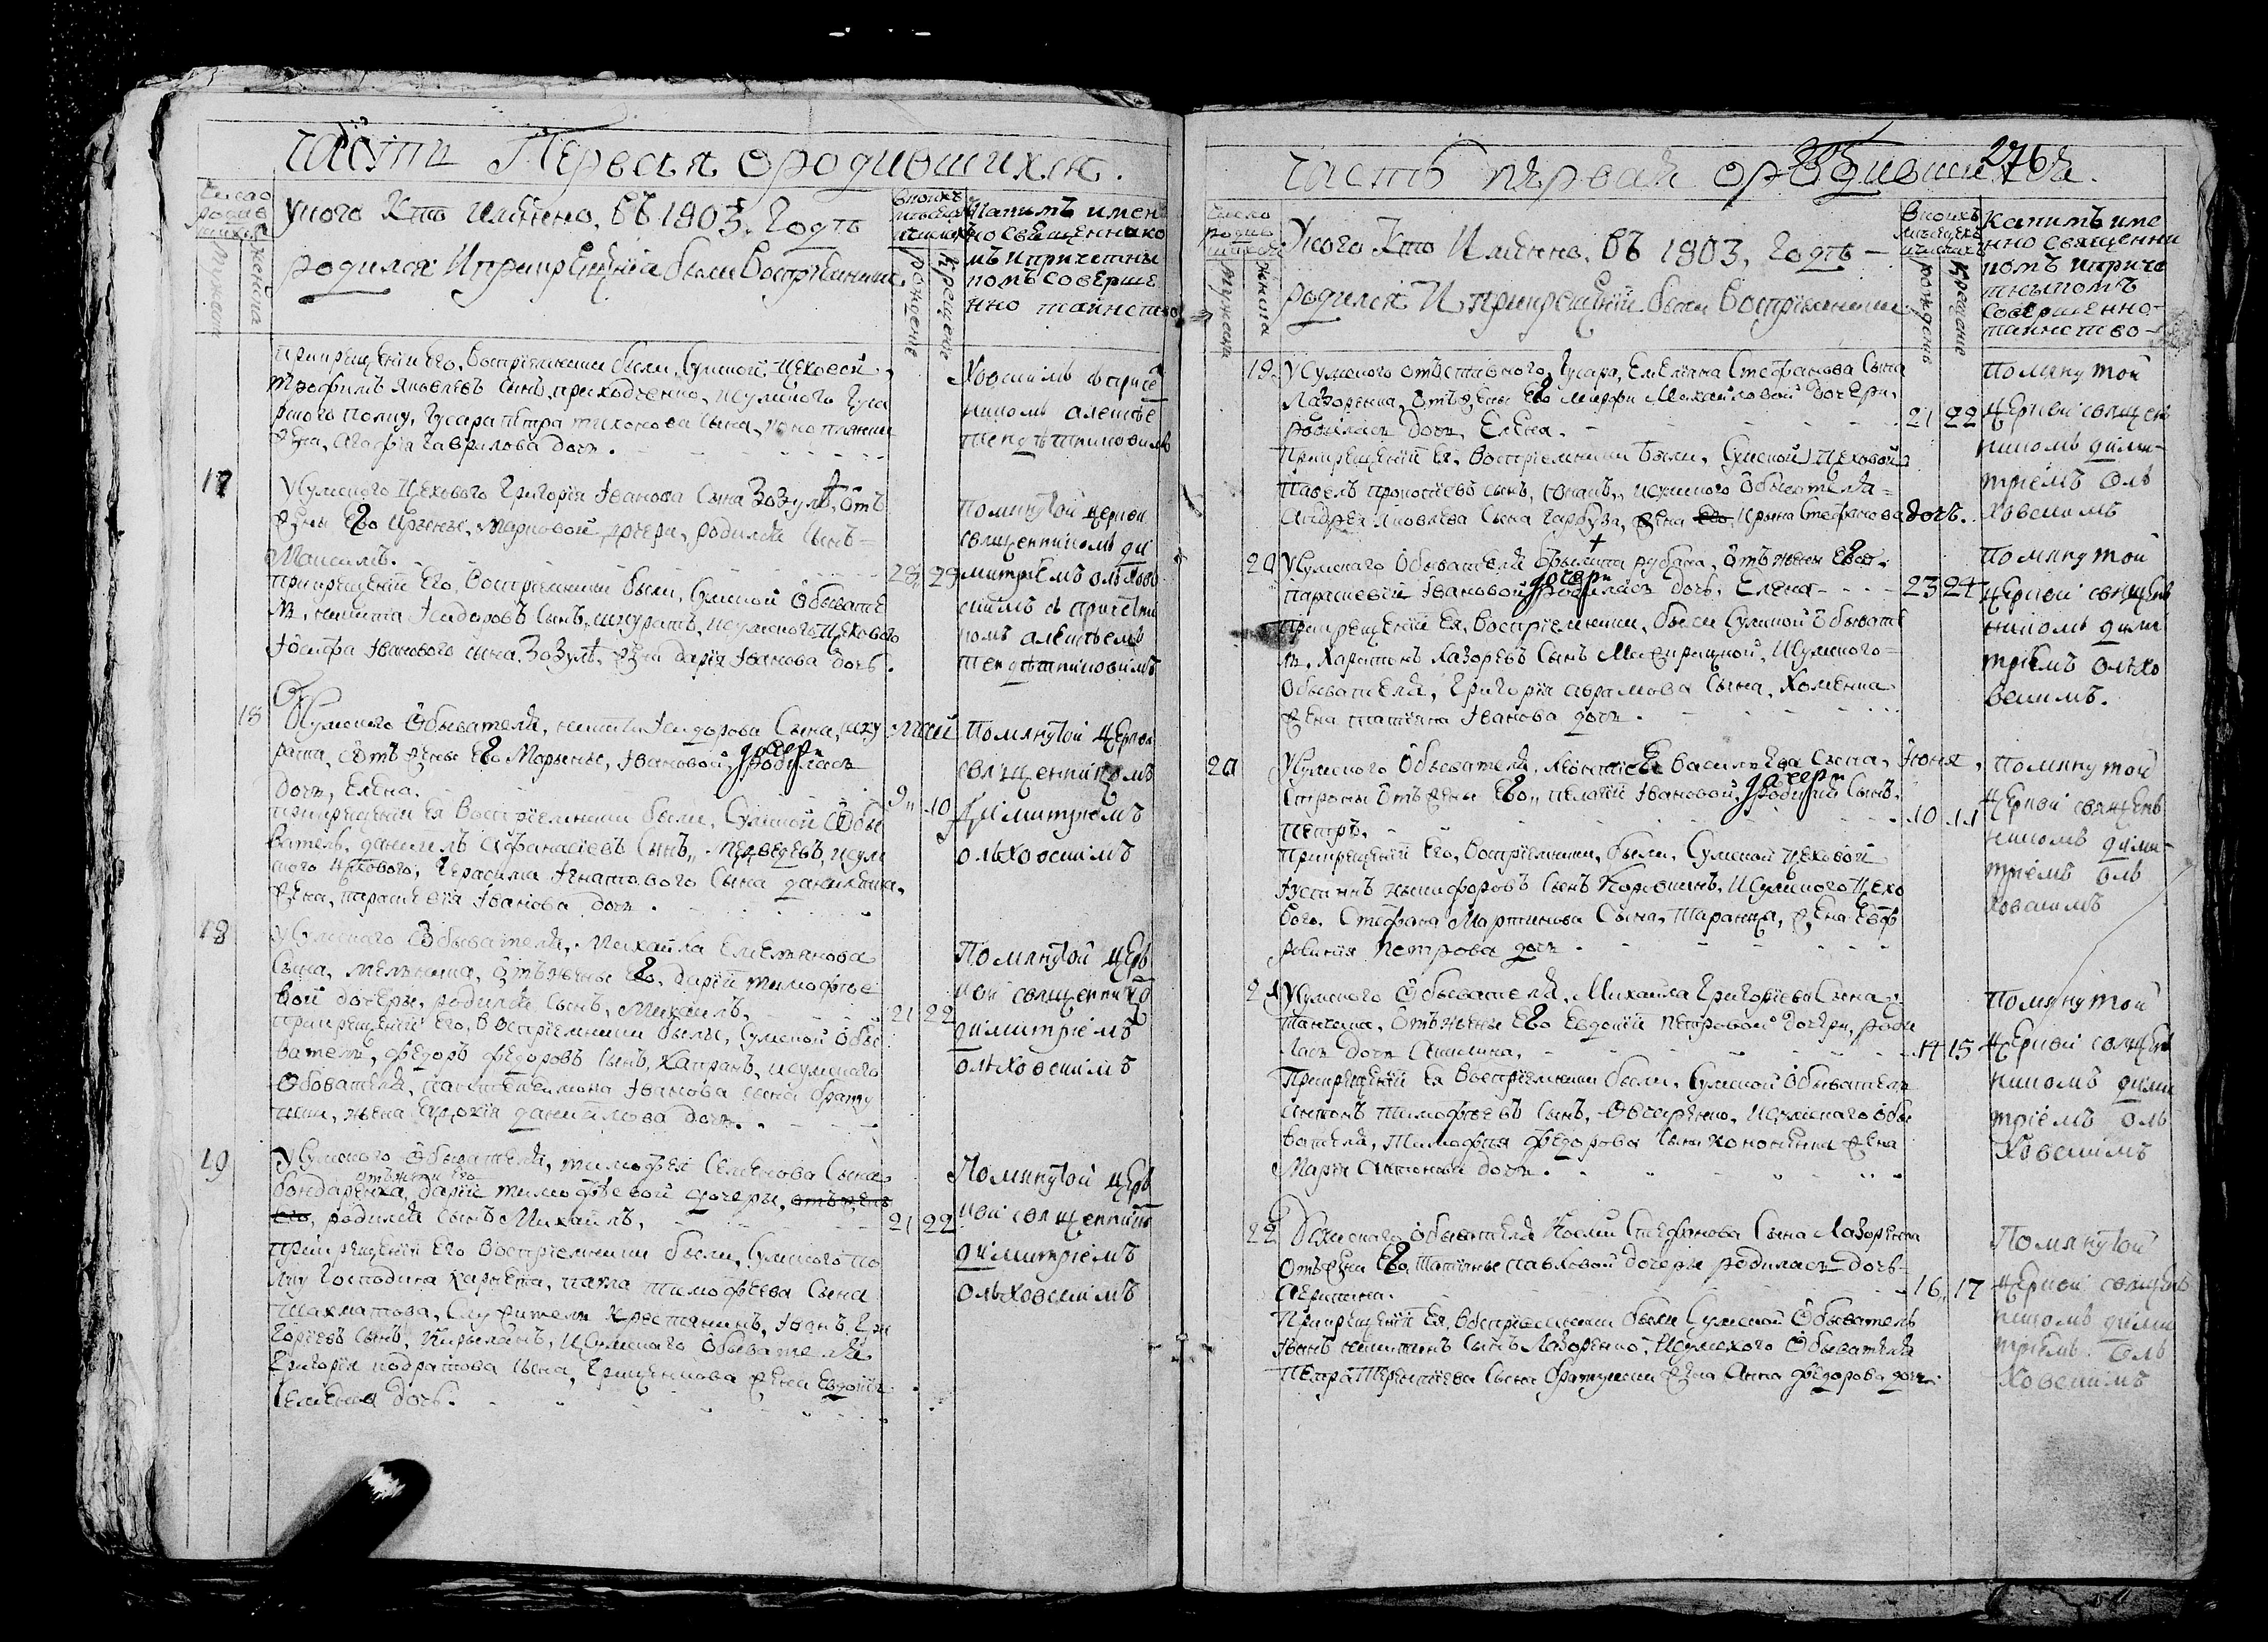 часть Первая о родившихся.
число родив шихся
мужеска
женска
У кого Кто Имянно, въ 1803, Годъ
родился И прикрещеніи были восприемники
в коихъ месяцехъ и числахъ
рождение
крещение
Какимъ имен
но священнико
мъ и причетни
комъ соверше
нно таинство
прикрещеніи Его, восприемники были, Сумской цеховой
Трофимъ Яковлевъ сынъ, приходченко, и сумского Гуса
рского полку, Гусара Петра тихонова сына, кононенки
жена, Агафія Гаврилова дочь.
Ховскимъ с приче
никомъ алексѣе
17
У Сумского Цехового Григорія Іванова Сына Зозулѣ, отъ
жены Его Ирыны, Марковой дочери, родился сынъ
Максимъ.
28 29
прикрещеніи Его, восприемники были, Сумской Обывате
ль, никита Ісидоровъ Сынъ, шкуратъ, и сумского цехового
Іосифа Іванового сына Зозулѣ, жена дарія Іванова дочь.
Помянутой церкви
священникомъ ди
митріемъ ольхов
скимъ с причетни
комъ алексѣемъ
18
У Сумского Обывателя, никиты Ісидорова Сына, шку
рата, отъ жены Его Марыны, Івановой, дочери родилась
дочь, Елена.
май
9 10
прикрещеніи Ея восприемники были, Сумской Обы
ватель, данилъ Афанасіевъ Сынъ, медведевъ, и сум
ского цехового, Герасима Ігнатового Сына данилыка,
жена, параскевія Іванова дочь.
Помянутой церкви
священникомъ
Димитріемъ
ольховскимъ
18
У Сумского Обывателя, Михайла Емельянова
Сына, мельника, отъ жены Его, дарии тимофѣе
вой дочеры, родился сынъ, Михаилъ,
21 22
прикрещеніи Его, восприемники были, Сумской Обы
ватель, федоръ федоровъ сынъ, Капранъ, и сумского
Обователя, пантелеимона Іванова сына братцу
шки, жена Евдокія данилова дочь.
Помянутой церк
ви священнико
димитріемъ
ольховскимъ
19
У Сумского Обывателя, тимофея Семенова Сына
отъ жены Его
бондаренка, дарии тимофѣевой дочеры, отъ жены
его, родился сынъ Михаилъ,
21 22
прикрещеніи Его восприемники были, Сумского по
лку Господина карнета, павла тимофеева Сына
Шахматова, Служитель крестянинъ, Іванъ Гри
горіевъ сынъ, Кирыланъ, и Сумского Обывателя
Григорія кодратова сына, Грищенкова жена Евдокія
Семенова дочь.
Помянутой церк
ви священник
димитріемъ
ольховскимъ
часть первая о родившихся.
276
число родив шихся
мужеска
женска
У кого Кто Имянно, въ 1803, Годъ
родился И прикрещеніи были восприемники
в коихъ месяцехъ и числахъ
рождение
крещение
Какимъ име
нно священни
комъ и приче
тникомъ
совершенно
таинство
19
У Сумского отъставного, Гусара, Емеліана Стефанова Сына
Лазоренка, отъ жены Его Марфы Михайловой дочери,
родилась дочь, Елена.
21 22
Прикрещеніи Ея, восприемники были, Сумской цеховой
Павелъ прокопіевъ сынъ, и сумского Обывателя
Андрея Яковлева Сына Гарбуза, жена его Ирына Стефанова дочь.
Помянутой
церкви священ
никомъ дими
тріемъ оль
ховскимъ
20
У Сумского Обывателя рубана, отъ жены Его
параскевіи Івановой дочери родилась дочь, Елена
23 24
Прикрещеніи Ея, восприемники, были Сумской Обывате
ль, Харитонъ Лазоревъ Сынъ И Сумского
Обывателя, Григорія аврамова Сына, Хоменка
жена татіяна Іванова дочь.
Помянутой
церкви священ
никомъ дими
тріемъ ольхо
вскимъ.
20
У Сумского Обывателя, леонтіева василіева Сына,
отъ жены Его, пелагіи Івановой, дочери родился Сынъ.
Петръ.
Іюня,
10 11
Прикрещеніи Его, восприемники, были, Сумской цеховой
Іустинъ никифоровъ Сынъ Коровкинъ, и Сумского Цехо
вого, Стефана Мартинова Сына, Таранца, жена Евф
росинія Петрова дочь.
Помянутой
церкви священ
никомъ дими
тріемъ оль
ховскимъ
21
У Сумского Обывателя, Михайла Григоріева Сына
Панченка, отъ жены Его Евдокіи Петровой дочери, роди
лась дочь Акилина,
14 15
Прикрещеніи Ея восприемники были, Сумской Обыватель
Антонъ Тимофѣевъ сынъ, Овчаренко, и сумского обы
вателя, Тимофія федорова сына кононенка жена
Марія Антонова дочь.
Помянутой
церкви священ
никомъ дими
тріемъ оль
Ховскимъ
22
У Сумского Обывателя Козми Стефанова Сына Лазоренка
отъ жены Его Татіяны павловой дочери родилась дочь
Акрипина.
16 17
Прикрещеніи Ея, восприемники были Сумской Обыватель
Іванъ никитинъ Сынъ Лазоренко, И сумского Обывателя
Петра Терентіева Сына братушки жена Анна федорова дочь.
Помянутой
церкви священ
никомъ дими
тріемъ Оль
Ховскимъ